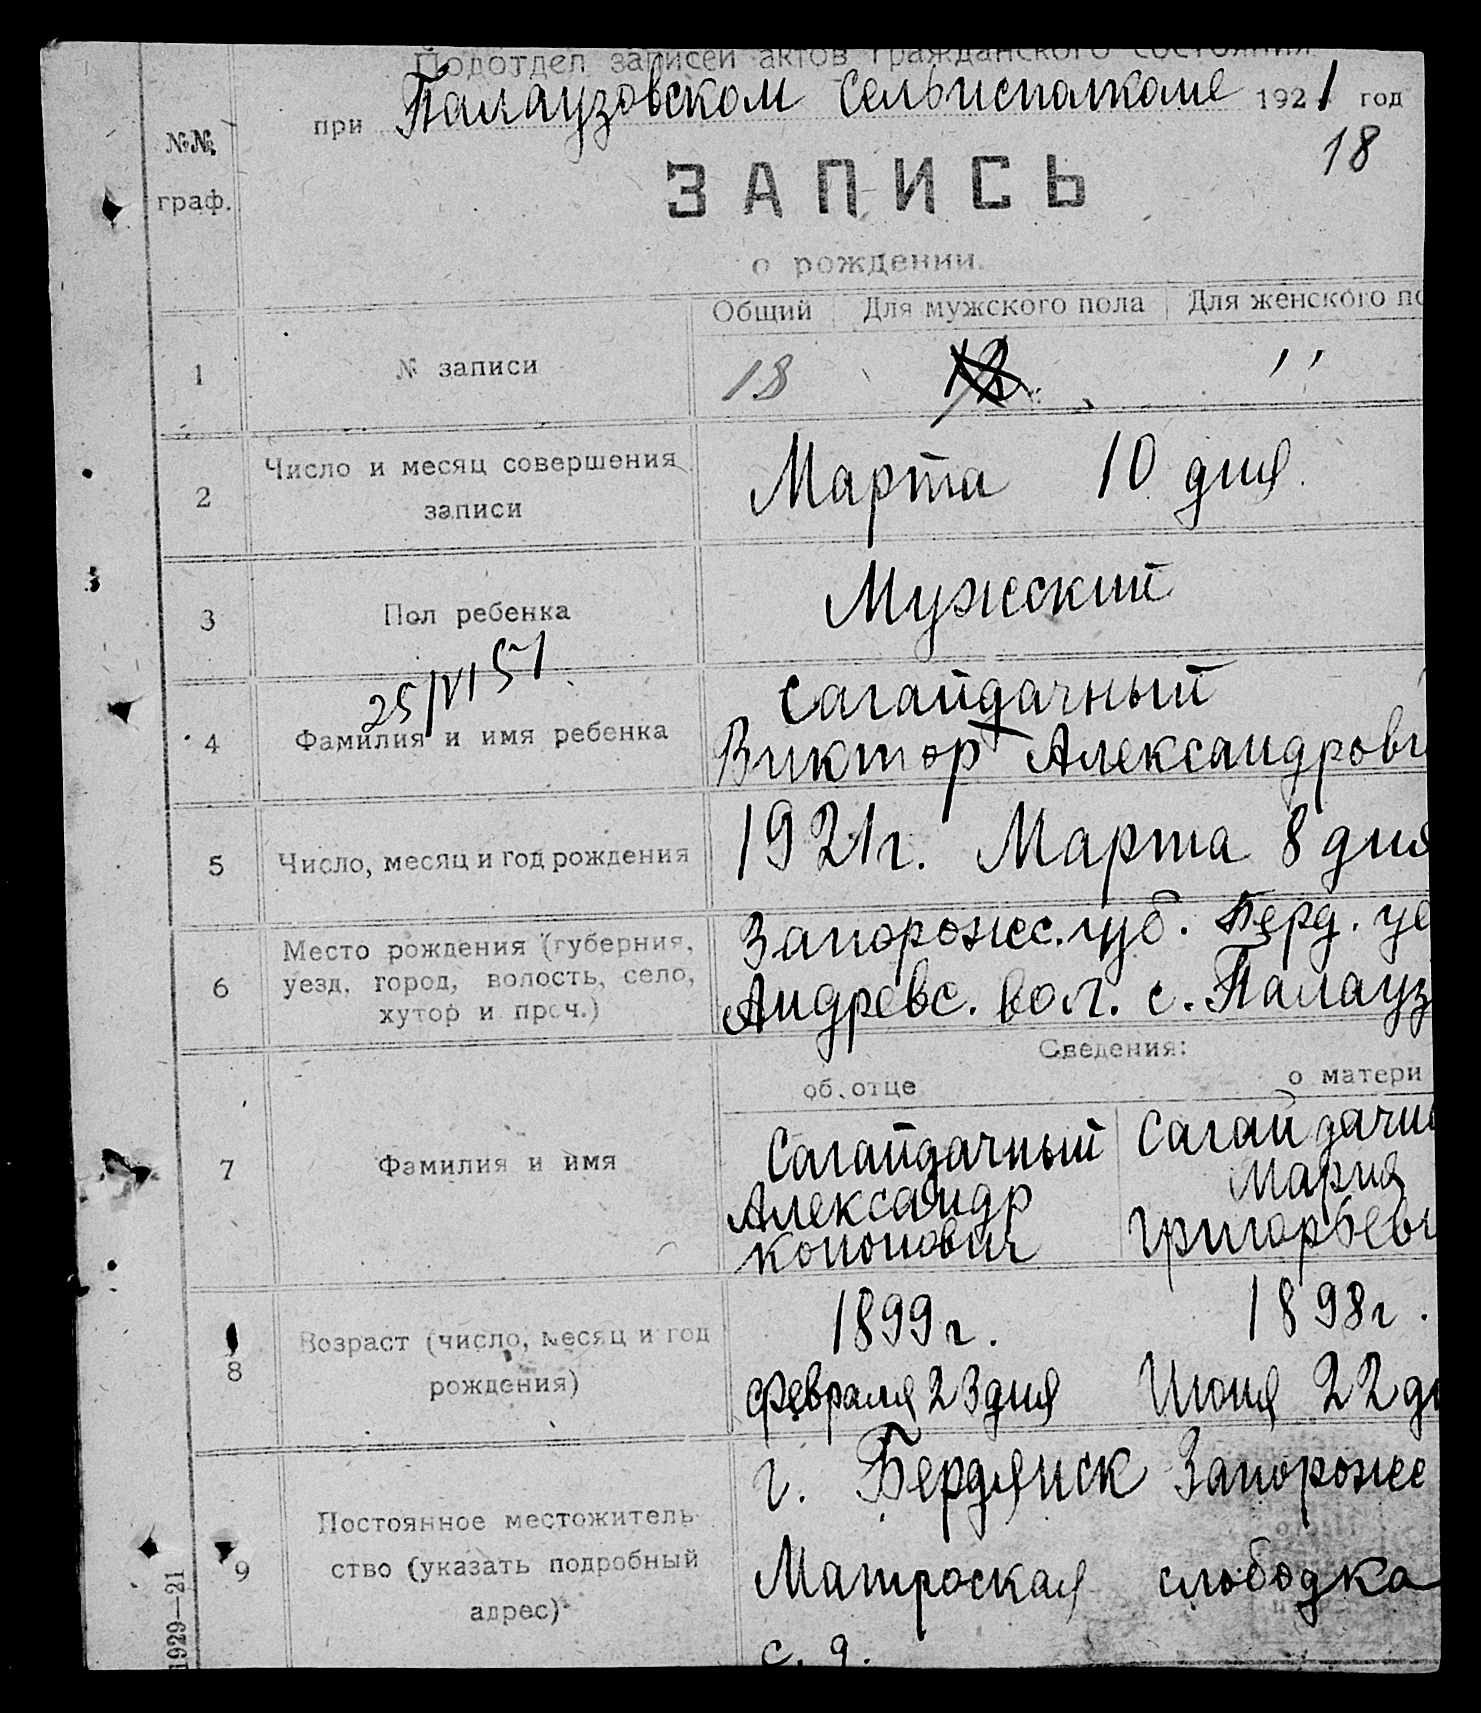 Подотдел записей актов гражданского состояния
при Палаузовском Сельисполкоме 1921 год
18
№№ граф.
ЗАПИСЬ
о рождении.
Общий Для мужского пола Для женского по
1 № записи 18 18 "
2 Число и месяц совершения записи Марта 10 дня.
3 Пол ребенка Мужеский
25/VI 51
4 Фамилия и имя ребенка Сагайдачный
Виктор Александрови
5 Число, месяц и год рождения 1921г. Марта 8 дня
6 Место рождения (губерния, Запорожс. губ. Берд. уе
уезд, город, волость, село, Андревс. вол. с. Палауз
хутор и проч.)
Сведения:
об отце о матери
7 Фамилия и имя Сагайдачный Сагайдачн
Александр Мария
Кононович Григорьевн
8 Возраст (число, месяц и год 1899г. 1898г.
рождения) Февраля 23 дня Июня 22 дн
9 Постоянное местожитель- г. Бердянск Запорожс
ство (указать подробный Матроская слободка
адрес) с. д.
1929—21